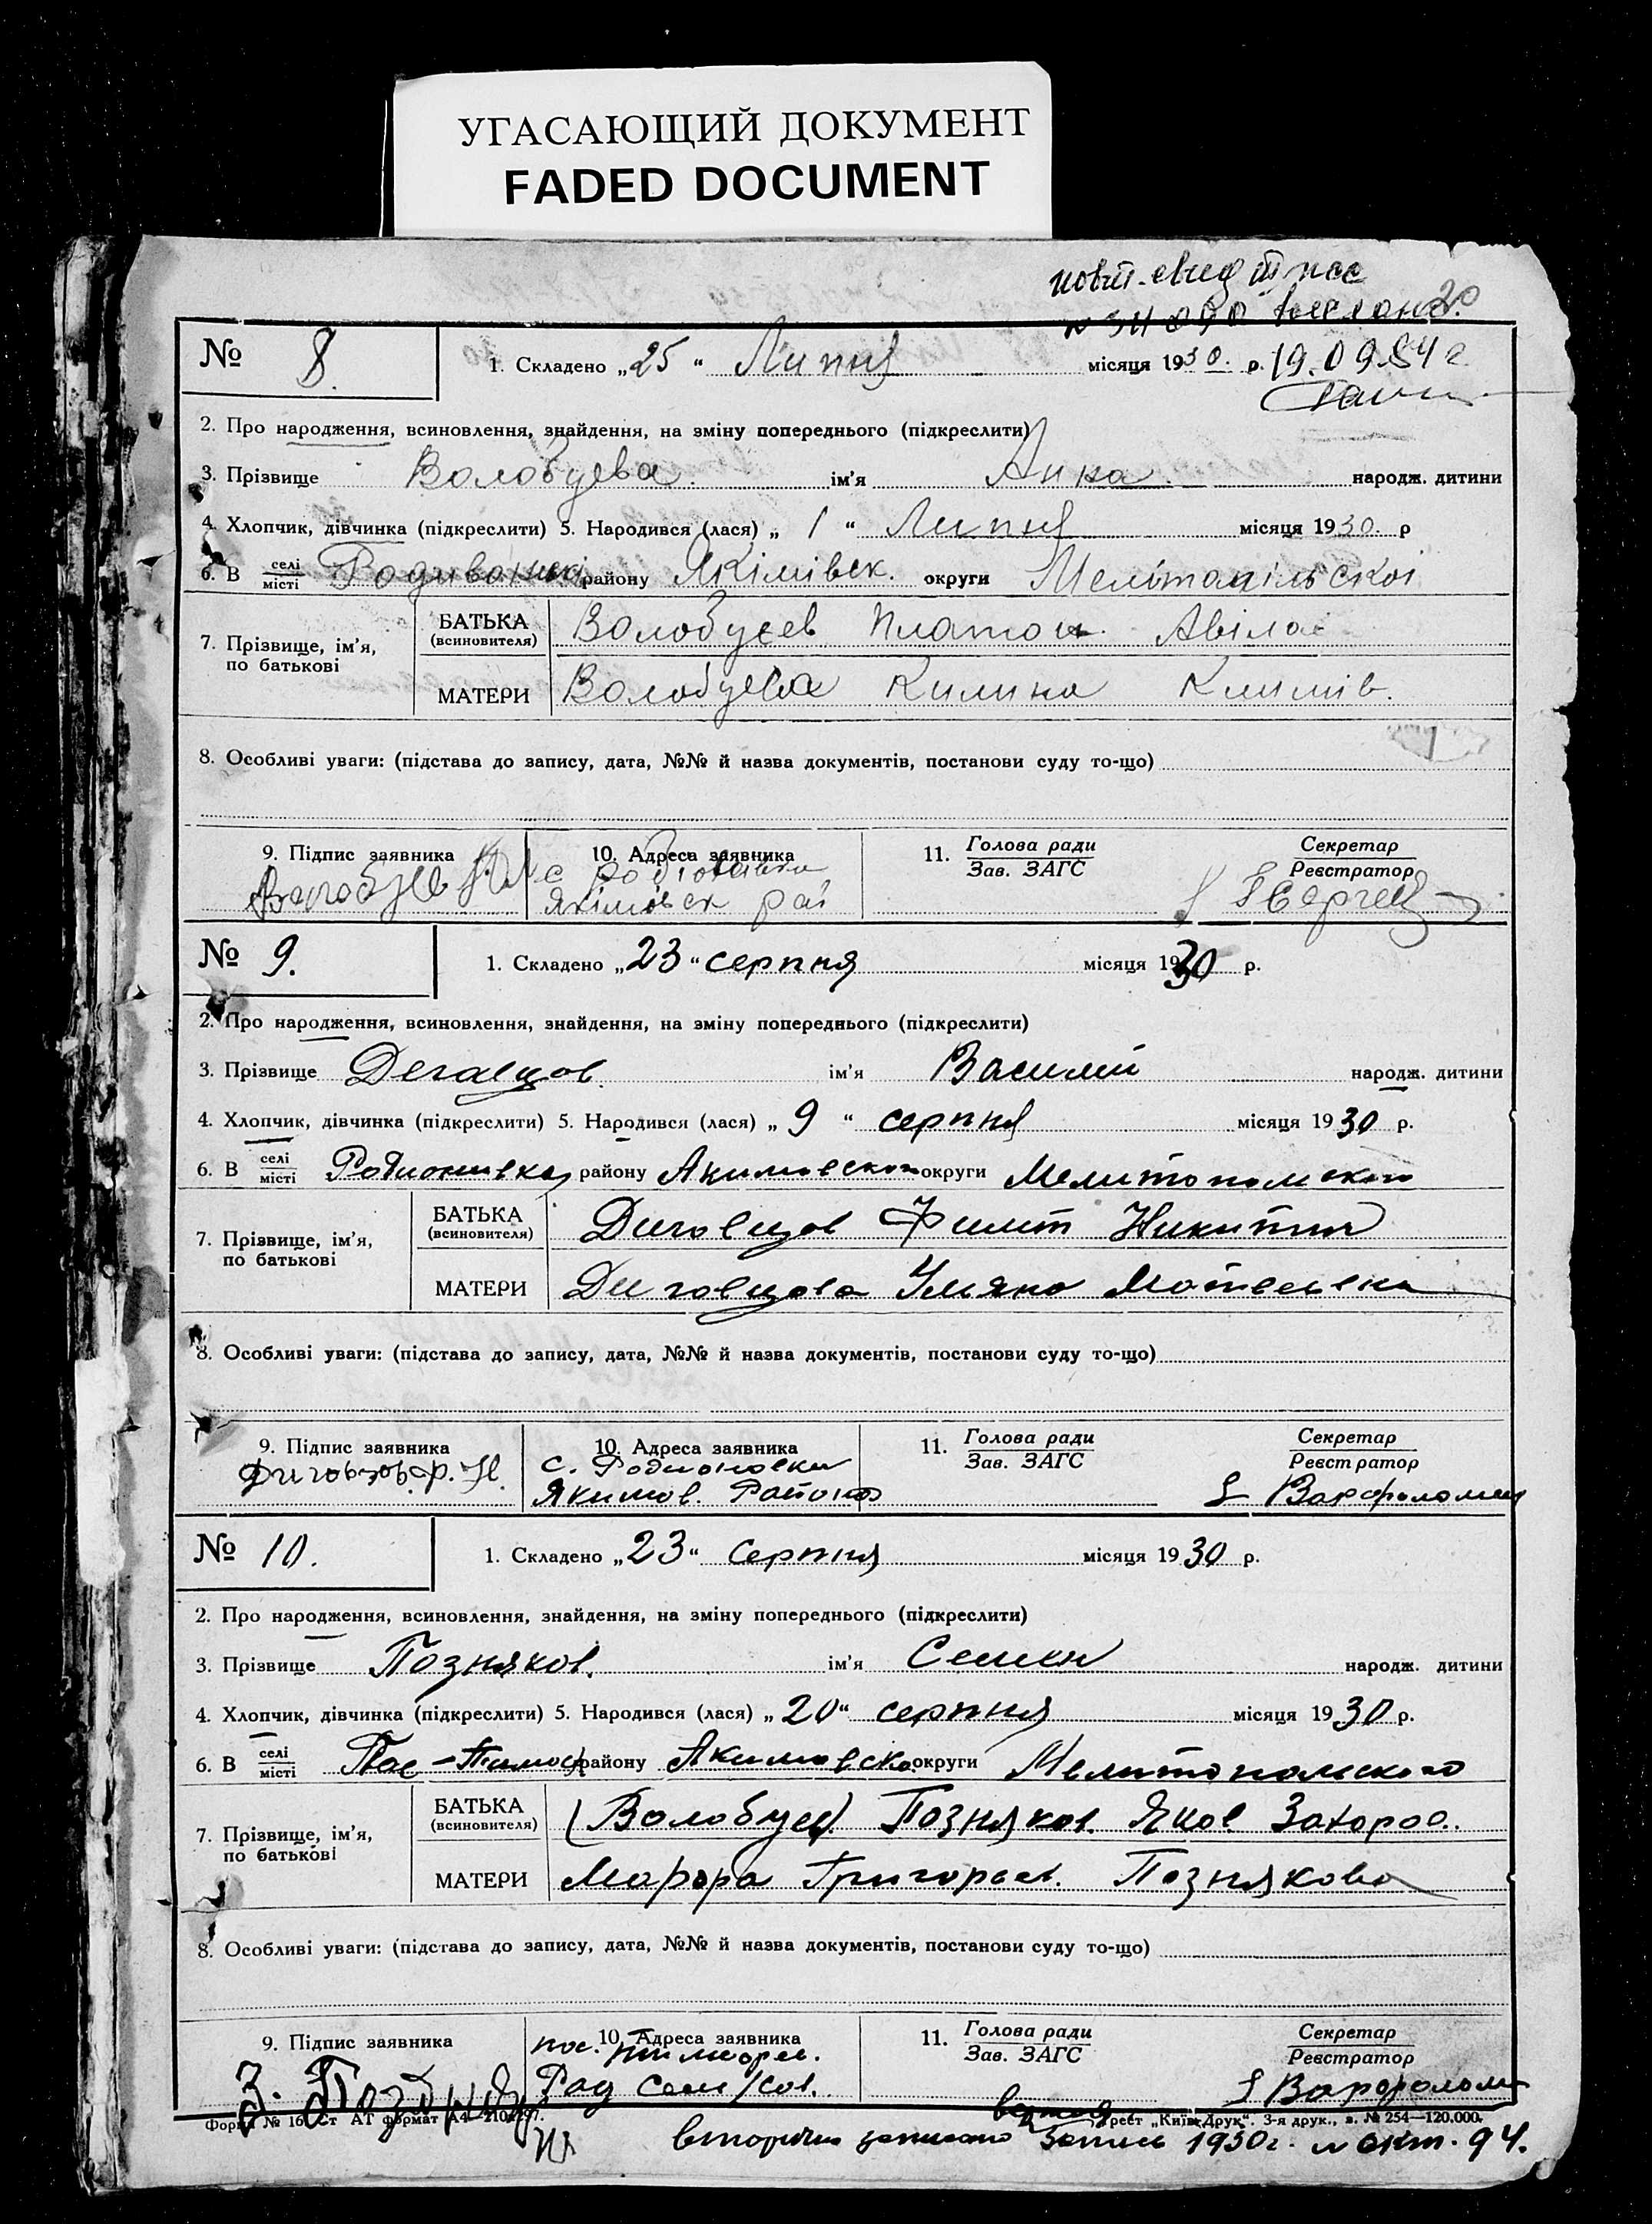 УГАСАЮЩИЙ ДОКУМЕНТ
FADED DOCUMENT
№ 8. 1. Складено „25“ Липня місяця 1930. р. 19.09.84 г.
2. Про народження, всиновлення, знайдення, на зміну попереднього (підкреслити)
3. Прізвище Волобуева. ім'я Анна народж. дитини
4. Хлопчик, дівчинка (підкреслити) 5. Народився (лася) „1“ Липня місяця 1930. р
6. В селі місті району Якімівск. округи Мелітопільскоі
7. Прізвище, ім'я, по батькові
БАТЬКА (всиновителя) Волобуєв Платон
МАТЕРИ Волобуева Килина Климів.
8. Особливі уваги: (підстава до запису, дата, №№ й назва документів, постанови суду то-що)
9. Підпис заявника 10. Адреса заявника 11. Голова ради Зав. ЗАГС Секретар Реєстратор
Якімовск
№ 9. 1. Складено „23“ серпня місяця 1930 р.
2. Про народження, всиновлення, знайдення, на зміну попереднього (підкреслити)
3. Прізвище Деговцов. ім'я Василий народж. дитини
4. Хлопчик, дівчинка (підкреслити) 5. Народився (лася) „9“ серпня місяця 1930 р.
6. В селі місті району Акимовского округи
7. Прізвище, ім'я, по батькові
БАТЬКА (всиновителя) Диговцов Филип
МАТЕРИ Диговцова Ульяна
8. Особливі уваги: (підстава до запису, дата, №№ й назва документів, постанови суду то-що)
9. Підпис заявника 10. Адреса заявника 11. Голова ради Зав. ЗАГС Секретар Реєстратор
Диговцов. Ф. Н. с. Родионовки
Якимов. Района
№ 10. 1. Складено „23“ серпня місяця 1930 р.
2. Про народження, всиновлення, знайдення, на зміну попереднього (підкреслити)
3. Прізвище Позняков. ім'я Семен народж. дитини
4. Хлопчик, дівчинка (підкреслити) 5. Народився (лася) „20“ серпня місяця 1930 р.
6. В селі місті району округи Мелитопольского
7. Прізвище, ім'я, по батькові
БАТЬКА (всиновителя) (Волобуев) Позняков Яков Захаров.
МАТЕРИ Марфа Григорьев. Познякова
8. Особливі уваги: (підстава до запису, дата, №№ й назва документів, постанови суду то-що)
9. Підпис заявника 10. Адреса заявника 11. Голова ради Зав. ЗАГС Секретар Реєстратор
Форма № 16 Ст АТ формат А4—210х297. Трест „Київ-Друк“. 3-я друк., з. № 254—120.000.
вторично записано запись 1930 г. 94.